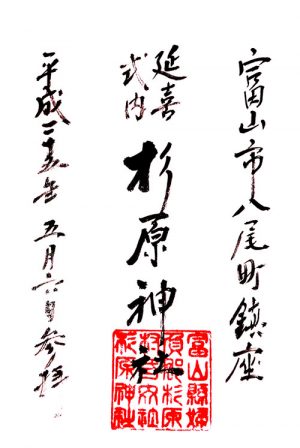 富山市八尾町鎮座
延喜
式内
杉原神社
平成二十五年五月六日参拝
富山縣婦
負郡杉原
村式内社
杉原神社